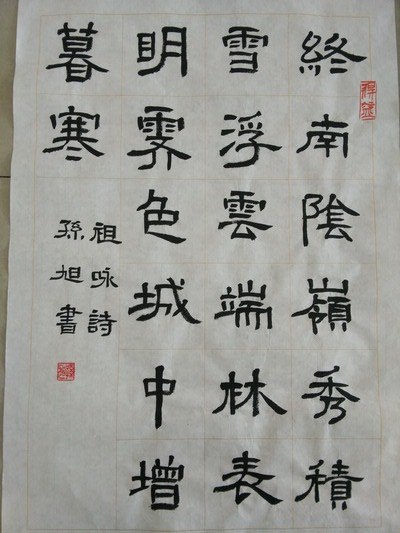 終南陰嶺秀積
雪浮雲端林表
明霽色城中增
暮寒
祖咏詩
孫旭書